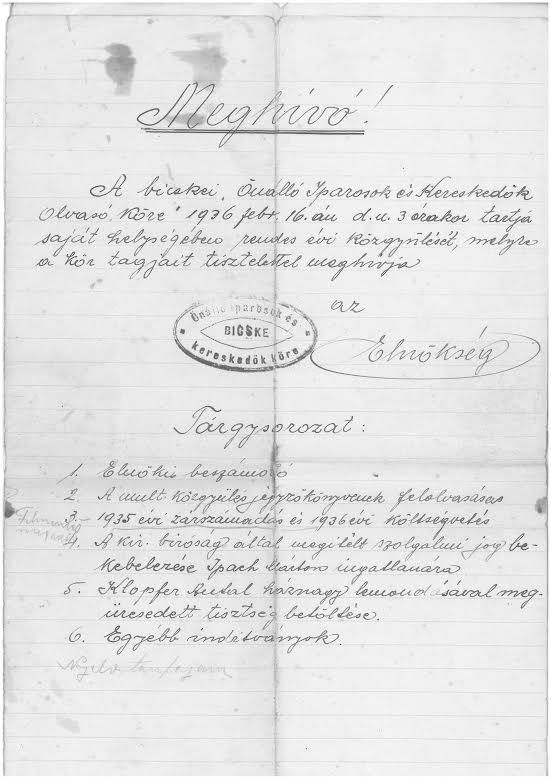 Meghívó!
A bicskei „Önálló Iparosok és Kereskedők
Olvasó Köre" 1936 febr. 16.án d.u. 3 órakor tartja
saját helységében rendes évi közgyűlését, melyre
a kör tagjait tisztelettel meghívja
az
Elnökség
Önálló iparosok és
BICSKE
kereskedők köre
Tárgysorozat:
1. Elnöki beszámoló
2. A mult közgyűlés jegyzőkönyvének felolvasása
3. 1935 évi zárszámadás és 1936 évi költségvetés
4. A kir. biróság által megitélt szolgalmi jog be-
kebelezése Ipach Márton ingatlanára
5. Klopfer Antal háznagy lemondásával meg-
üresedett tisztség betöltése.
6. Egyebb inditványok.